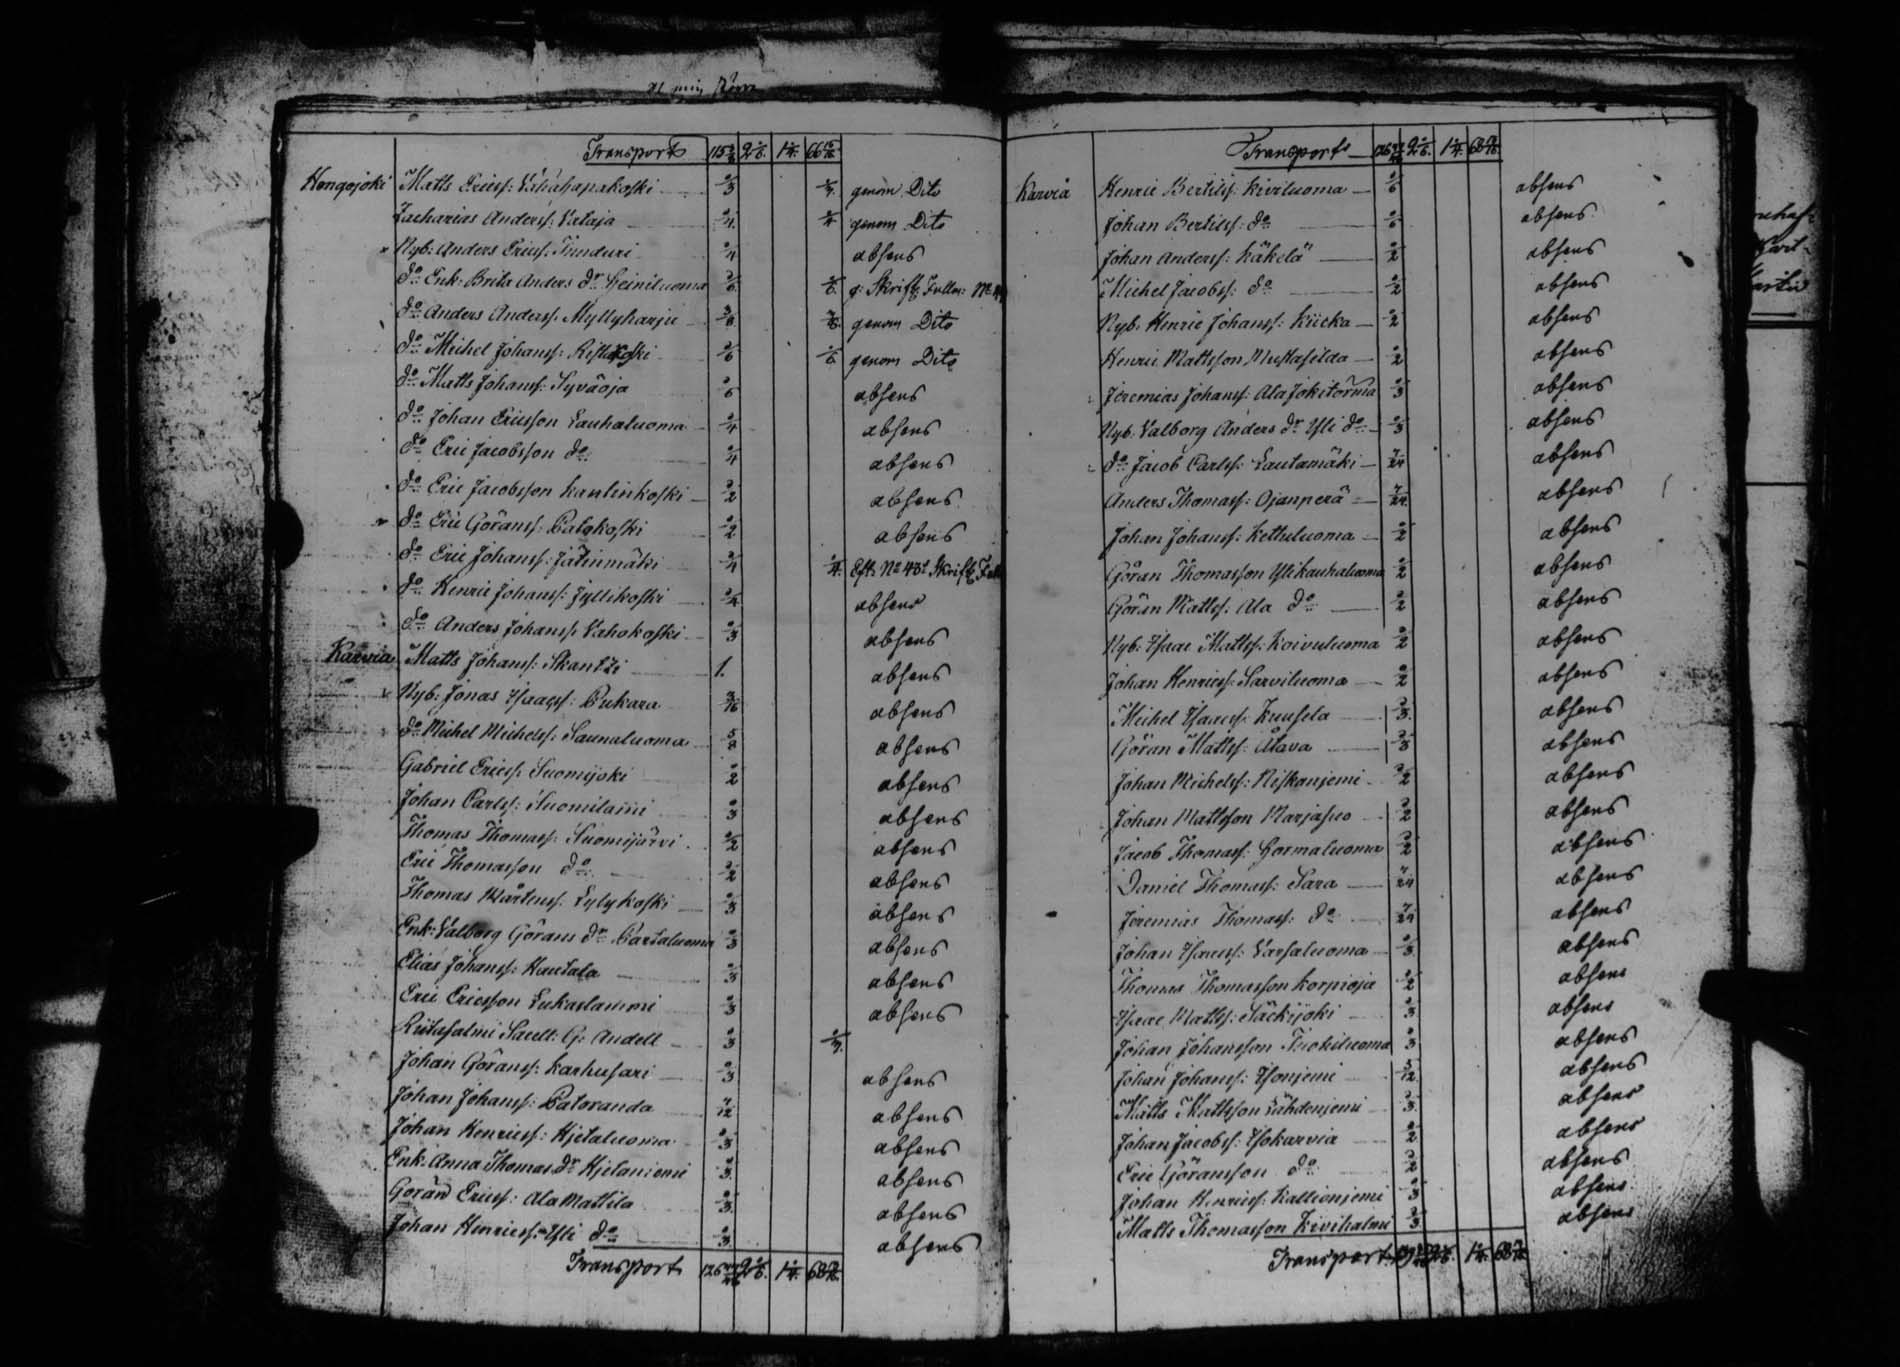 Transport 115 2 1/6. 1 1/4. 66
Hongojoki Matts Ericss: Vähähapakoski 2/3 1/3. genom Dito
Zacharias Anderss: Vataja 1/4 1/4 genom Dito
Nyb: Anders Ericss: absens
do Enk: Brita Anders dr Heiniluoma g: Skriftl. Fullm: No
do Anders Anderss. Myllyharju 3/8 genom Dito
do Michel Johanss: Ristikoski genom Dito
do Matts Johanss: Syväoja absens
do Johan Ericsson Lauhaluoma 1/4 absens
do Eric Jacobsson do 1/4 absens
do Eric Jacobsson Kantinkoski 1/2 absens
do Eric Göranss: Patokoski 1/2 absens
do Eric Johanss: Jätinmäki 1/4 1/4. Eft. No 43. Skriftl. Full
do Henric Johanss: Jyllikoski absens
do Anders Johanss. Vahokoski 1/3 absens
Karvia Matts Johanss: Skantzi 1. absens
Nyb: Jonas Isaacss: Pukara 3/16 absens
do Michel Michelss: Saunaluoma 5/8 absens
Gabriel Ericss. Suomijoki 1/2 absens
Johan Carlss: Suomilammi absens
Thomas Thomass: Suomijärvi 1/2 absens
Eric Thomasson do 1/2 absens
Thomas Mårtenss. Lylykoski absens
Enk: Valborg Görans dr absens
Elias Johanss: Hautala absens
Eric Ericsson Lukaslammi absens
Saellt: G: Andell
Johan Göranss: Karhusari absens
Johan Johanss: Patoranda 7/12 absens
Johan Henricss: Hjetaluoma absens
Enk: Anna Thomas dr Hjetaniemi absens
Göran Ericss: Ala Mattila absens
Johan Henricss: Ysli do absens
Transport 126 2 1/6. 1 1/4. 68
Transport 126 2 1/6. 1 1/4. 68
Karvia Henric Bertilss: Kiviluoma 1/6 absens
Johan Bertilss: do 1/6 absens
Johan Anderss: Käkelä 1/2 absens
Michel Jacobss: do 1/2 absens
Nyb. Henric Johanss: Kiicka 1/2 absens
Henric Mattsson Mustasilda 1/2 absens
Jeremias Johanss: Ala Jokitörmä absens
Nyb. Valborg Anders dr Ysli do absens
do Jacob Carlss: Lautamäki 7/24 absens
Anders Thomass: Ojanperä 7/24 absens
Johan Johanss: Kettuluoma 1/2 absens
Göran Thomasson Ylikauhaluoma 1/2 absens
Göran Matts: Ala do 1/2 absens
Nyb. Isaac Mattss: Koivuluoma 1/2 absens
Johan Henricss: Sarviluoma 1/2 absens
Michel Isaacss: Kuusela absens
Göran Mattss: Åtava absens
Johan Michelss: Niskanjemi 1/2 absens
Johan Mattsson Marjasuo 1/2 absens
Jacob Thomass: Hormaluoma 1/2 absens
Daniel Thomass: Sara 7/24 absens
Jeremias Thomass: do 7/24 absens
Johan Isaacss: Varsaluoma absens
Thomas Thomasson Korpioja 1/2 absens
Isaac Mattss: Säckijoki absens
Johan Johansson absens
Johan Johanss: Isonjemi 5/12 absens
Matts Mattsson Lähdenjemi absens
Johan Jacobss: Isokarvia 1/2 absens
Eric Göransson do 1/2 absens
Johan Henricss: Kallionjemi absens
Matts Thomasson Kivihalmi absens
Transport 2 1/6. 1 1/4. 68